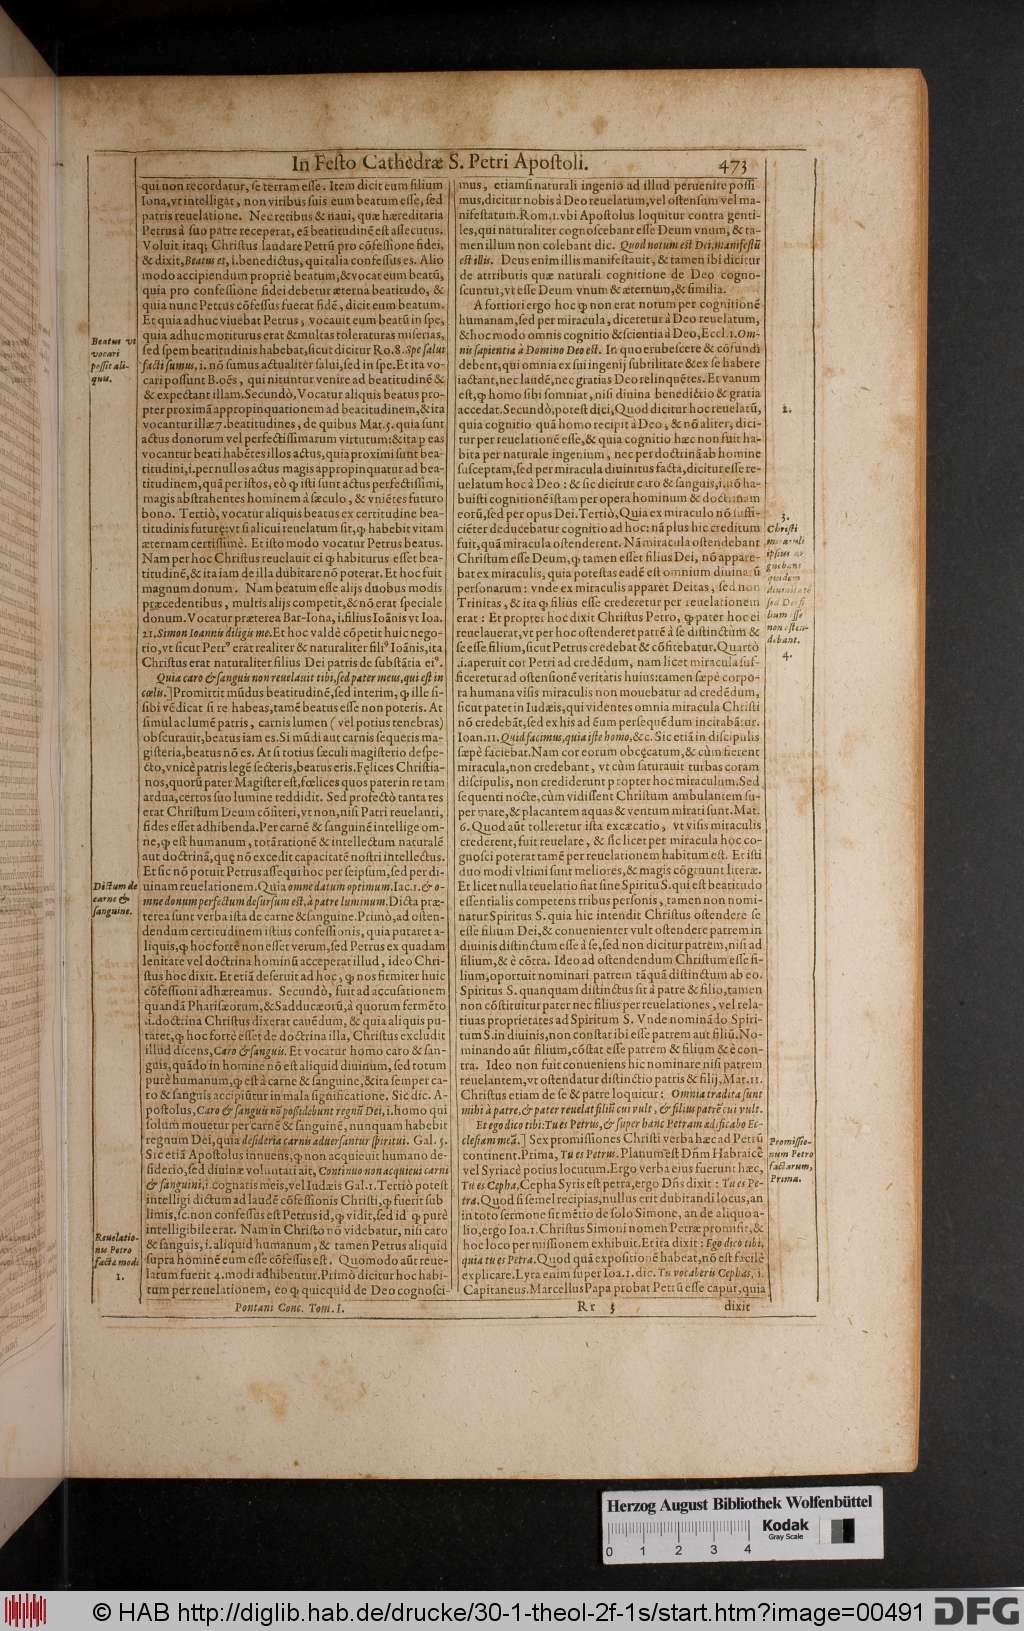 In Festo Cathedræ S. Petri Apostoli. 473
qui non recordatur, se terram esse. Item dicit eum filium
Iona, vt intelligat, non viribus suis eum beatum esse, sed
patris reuelatione. Nec retibus & naui, quæ hæreditaria
Petrus à suo patre receperat, eã beatitudinẽ est assecutus.
Voluit itaq; Christus laudare Petrũ pro cõfessione fidei,
& dixit, Beatus es, i. benedictus, qui talia confessus es. Alio
modo accipiendum propriè beatum, & vocat eum beatũ,
quia pro confessione fidei debetur æterna beatitudo, &
quia nunc Petrus cõfessus fuerat fidẽ, dicit eum beatum.
Et quia adhuc viuebat Petrus, vocauit eum beatũ in spe,
quia adhuc moriturus erat & multas toleraturus miserias,
sed spem beatitudinis habebat, sicut dicitur Ro. 8. Spe salui
facti sumus, i. nõ sumus actualiter salui, sed in spe. Et ita vo-
cari possunt B. oẽs, qui nituntur venire ad beatitudinẽ &
& expectant illam. Secundò, Vocatur aliquis beatus pro-
pter proximã appropinquationem ad beatitudinem, & ita
vocantur illæ 7. beatitudines, de quibus Mat. 5. quia sunt
actus donorum vel perfectissimarum virtutum: & ita p eas
vocantur beati habẽtes illos actus, quia proximi sunt bea-
titudini, i. per nullos actus magis appropinquatur ad bea-
titudinem, quã per istos, eò ꝙ isti sunt actus perfectissimi,
magis abstrahentes hominem à sæculo, & vniẽtes futuro
bono. Tertiò, vocatur aliquis beatus ex certitudine bea-
titudinis futurę: vt si alicui reuelatum sit, ꝙ habebit vitam
æternam certissimè. Et isto modo vocatur Petrus beatus.
Nam per hoc Christus reuelauit ei ꝙ habiturus esset bea-
titudinẽ, & ita iam de illa dubitare nõ poterat. Et hoc fuit
magnum donum. Nam beatum esse alijs duobus modis
præcedentibus, multis alijs competit, & nõ erat speciale
donum. Vocatur præterea Bar-Iona, i. filius Ioãnis vt Ioa.
21. Simon Ioannis diligis me. Et hoc valdè cõpetit huic nego-
tio, vt sicut Petrꝰ erat realiter & naturaliter filiꝰ Ioãnis, ita
Christus erat naturaliter filius Dei patris de substãtia eiꝰ.
Quia caro & sanguis non reuelauit tibi, sed pater meus, qui est in
cœlis.] Promittit mũdus beatitudinẽ, sed interim, ꝙ ille si-
bi vẽdicat si re habeas, tamẽ beatus esse non poteris. At
simul ac lumẽ patris, carnis lumen (vel potius tenebras)
obscurauit, beatus iam es. Si mũdi aut carnis sequeris ma-
gisteria, beatus nõ es. At si totius sæculi magisterio despe-
cto, vnicè patris legẽ secteris, beatus eris. Felices Christia-
nos, quorũ pater Magister est, fœlices quos pater in re tam
ardua, certos suo lumine reddidit. Sed profectò tanta res
erat Christum Deum cõfiteri, vt non, nisi Patri reuelanti,
fides esset adhibenda. Per carnẽ & sanguinẽ intellige om-
ne, ꝙ est humanum, totã rationẽ & intellectum naturalẽ
aut doctrinã, quę nõ excedit capacitatẽ nostri intellectus.
Et sic nõ potuit Petrus assequi hoc per seipsum, sed per di-
uinam reuelationem. Quia omne datum optimum. Iac. 1. & o-
mne donum perfectum desursum est, à patre luminum. Dicta præ-
terea sunt verba ista de carne & sanguine. Primò, ad osten-
dendum certitudinem istius confessionis, quia putaret a-
liquis, ꝙ hoc fortè non esset verum, sed Petrus ex quadam
lenitate vel doctrina hominũ acceperat illud, ideo Chri-
stus hoc dixit. Et etiã deseruit ad hoc, ꝙ nos firmiter huic
cõfessioni adhæreamus. Secundò, fuit ad accusationem
quandã Pharisæorum, & Sadducæorũ, à quorum fermẽto
.i. doctrina Christus dixerat cauẽdum, & quia aliquis pu-
taret, ꝙ hoc fortè esset de doctrina illa, Christus excludit
illud dicens, Caro & sanguis. Et vocatur homo caro & san-
guis, quãdo in homine nõ est aliquid diuinum, sed totum
purè humanum, ꝙ est à carne & sanguine, & ita semper ca-
ro & sanguis accipiũtur in mala significatione. Sic dic. A-
postolus, Caro & sanguis nõ possidebunt regnũ Dei, i. homo qui
solum mouetur per carnẽ & sanguinẽ, nunquam habebit
regnum Dei, quia desideria carnis aduersantur spiritui. Gal. 5.
Sic etiã Apostolus innuens, ꝙ non acquieuit humano de-
siderio, sed diuinæ voluntati ait, Continuo non acquieui carni
& sanguini, i. cognatis meis, vel Iudæis Gal. 1. Tertiò potest
intelligi dictum ad laudẽ cõfessionis Christi, ꝙ fuerit sub
limis, sc. non confessus est Petrus id, ꝙ vidit, sed id ꝙ purè
intelligibile erat. Nam in Christo nõ videbatur, nisi caro
& sanguis, i. aliquid humanum, & tamen Petrus aliquid
supra hominẽ eum esse cõfessus est. Quomodo aũt reue-
latum fuerit 4. modi adhibentur. Primò dicitur hoc habi-
tum per reuelationem, eo ꝙ quicquid de Deo cognosci-
Beatus vt
vocari
possit ali-
quis.
Dictum de
carne &
sanguine.
Reuelatio-
nis Petro
facta modi
1.
mus, etiamsi naturali ingenio ad illud peruenire possi
mus, dicitur nobis à Deo reuelatum, vel ostensum vel ma-
nifestatum. Rom. 1. vbi Apostolus loquitur contra genti-
les, qui naturaliter cognoscebant esse Deum vnum, & ta-
men illum non colebant dic. Quod notum est Dei, manifestũ
est illis. Deus enim illis manifestauit, & tamen ibi dicitur
de attributis quæ naturali cognitione de Deo cogno-
scuntur, vt esse Deum vnum & æternum, & similia.
A fortiori ergo hoc ꝙ non erat notum per cognitionẽ
humanam, sed per miracula, diceretur à Deo reuelatum,
& hoc modo omnis cognitio & scientia à Deo, Eccl. 1. Om-
nis sapientia à Domino Deo est. In quo erubescere & cõfundi
debent, qui omnia ex sui ingenij subtilitate & ex se habere
iactant, nec laudẽ, nec gratias Deo relinquẽtes. Et vanum
est, ꝙ homo sibi somniat, nisi diuina benedictio & gratia
accedat. Secundò, potest dici, Quod dicitur hoc reuelatũ,
quia cognitio quã homo recipit à Deo, & nõ aliter, dici-
tur per reuelationẽ esse, & quia cognitio hæc non fuit ha-
bita per naturale ingenium, nec per doctrinã ab homine
susceptam, sed per miracula diuinitus facta, dicitur esse re-
uelatum hoc à Deo: & sic dicitur caro & sanguis, i. nõ ha-
buisti cognitionẽ istam per opera hominum & doctrinam
eorũ, sed per opus Dei. Tertiò, Quia ex miraculo nõ suffi-
ciẽter deducebatur cognitio ad hoc: nã plus hic creditum
fuit, quã miracula ostenderent. Nã miracula ostendebant
Christum esse Deum, ꝙ tamen esset filius Dei, nõ appare-
bat ex miraculis, quia potestas eadẽ est omnium diuinarũ
personarum: vnde ex miraculis apparet Deitas, sed non
Trinitas, & ita ꝙ filius esse crederetur per reuelationem
erat: Et propter hoc dixit Christus Petro, ꝙ pater hoc ei
reuelauerat, vt per hoc ostenderet patrẽ à se distinctum &
se esse filium, sicut Petrus credebat & cõfitebatur. Quartò
.i. aperuit cor Petri ad credẽdum, nam licet miracula suf-
ficeretur ad ostensionẽ veritatis huius: tamen sæpè corpo-
ra humana visis miraculis non mouebatur ad credẽdum,
sicut patet in Iudæis, qui videntes omnia miracula Christi
nõ credebãt, sed ex his ad eum persequẽdum incitabãtur.
Ioan. 11. Quid facimus, quia iste homo, &c. Sic etiã in discipulis
sæpè faciebat. Nam cor eorum obcęcatum, & cùm fierent
miracula, non credebant, vt cùm saturauit turbas coram
discipulis, non crediderunt propter hoc miraculum. Sed
sequenti nocte, cùm vidissent Christum ambulantem su-
per mare, & placantem aquas & ventum mirati sunt. Mat.
6. Quod aũt tolleretur ista excæcatio, vt visis miraculis
crederent, fuit reuelare, & sic licet per miracula hoc co-
gnosci poterat tamẽ per reuelationem habitum est. Et isti
duo modi vltimi sunt meliores, & magis cõgruunt literæ.
Et licet nulla reuelatio fiat sine Spiritu S. qui est beatitudo
essentialis competens tribus personis, tamen non nomi-
natur Spiritus S. quia hic intendit Christus ostendere se
esse filium Dei, & conuenienter vult ostendere patrem in
diuinis distinctum esse à se, sed non dicitur patrem, nisi ad
filium, & è cõtra. Ideo ad ostendendum Christum esse fi-
lium, oportuit nominari patrem tãquã distinctum ab eo.
Spiritus S. quanquam distinctus sit à patre & filio, tamen
non cõstituitur pater nec filius per reuelationes, vel rela-
tiuas proprietates ad Spiritum S. Vnde nominãdo Spiri-
tum S. in diuinis, non constat ibi esse patrem aut filiũ. No-
minando aũt filium, cõstat esse patrem & filium & è con-
tra. Ideo non fuit conueniens hic nominare nisi patrem
reuelantem, vt ostendatur distinctio patris & filij, Mat. 11.
Christus etiam de se & patre loquitur: Omnia tradita sunt
mihi à patre, & pater reuelat filiũ cui vult, & filius patrẽ cui vult.
Et ego dico tibi: Tu es Petrus, & super hanc Petram ædificabo Ec-
clesiam meã.] Sex promissiones Christi verba hæc ad Petrũ
continent. Prima, Tu es Petrus. Planum est Dñm Habraicè
vel Syriacè potius locutum. Ergo verba eius fuerunt hæc,
Tu es Cepha, Cepha Syris est petra, ergo Dñs dixit: Tu es Pe-
tra. Quod si semel recipias, nullus erit dubitandi locus, an
in toto sermone sit mẽtio de solo Simone, an de aliquo a-
lio, ergo Ioa. 1. Christus Simoni nomen Petræ promisit, &
hoc loco per missionem exhibuit. Et ita dixit: Ego dico tibi,
quia tu es Petra. Quod quã expositionẽ habeat, nõ est facilè
explicare. Lyra enim super Ioa. 1. dic. Tu vocaberis Cephas, i.
Capitaneus. Marcellus Papa probat Petrũ esse caput, quia
2.
3.
Christi
miraculi
diuinitatẽ
non osten-
debant.
4.
Promissio-
num Petro
factarum,
Prima.
Pontani Conc. Tom. I. Rr 3 dixit
Herzog August Bibliothek Wolfenbüttel
Kodak
Gray Scale
0 1 2 3 4
© HAB http://diglib.hab.de/drucke/30-1-theol-2f-1s/start.htm?image=00491
DFG